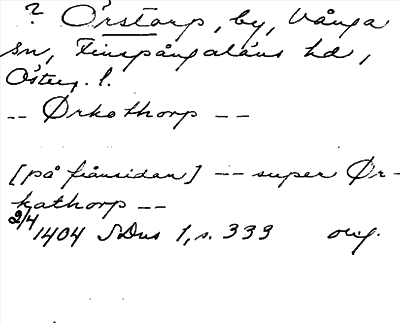 ? Örstorp, by, Vånga
sn, Finspångaläns hd,
Österg. l.
-- Ørkothorp --
[på frånsidan] -- super Ør-
kathorp --
2/4 1404 SDns 1, s. 333 orig.